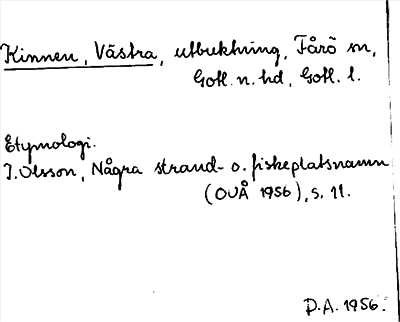 Kinnen, Västra, utbuktning, Fårö sn,
Gotl. n. hd, Gotl. l.
Etymologi.
I. Olsson, Några strand- o. fiskeplatsnamn
(OUÅ 1956), s. 11.
D.A. 1956.